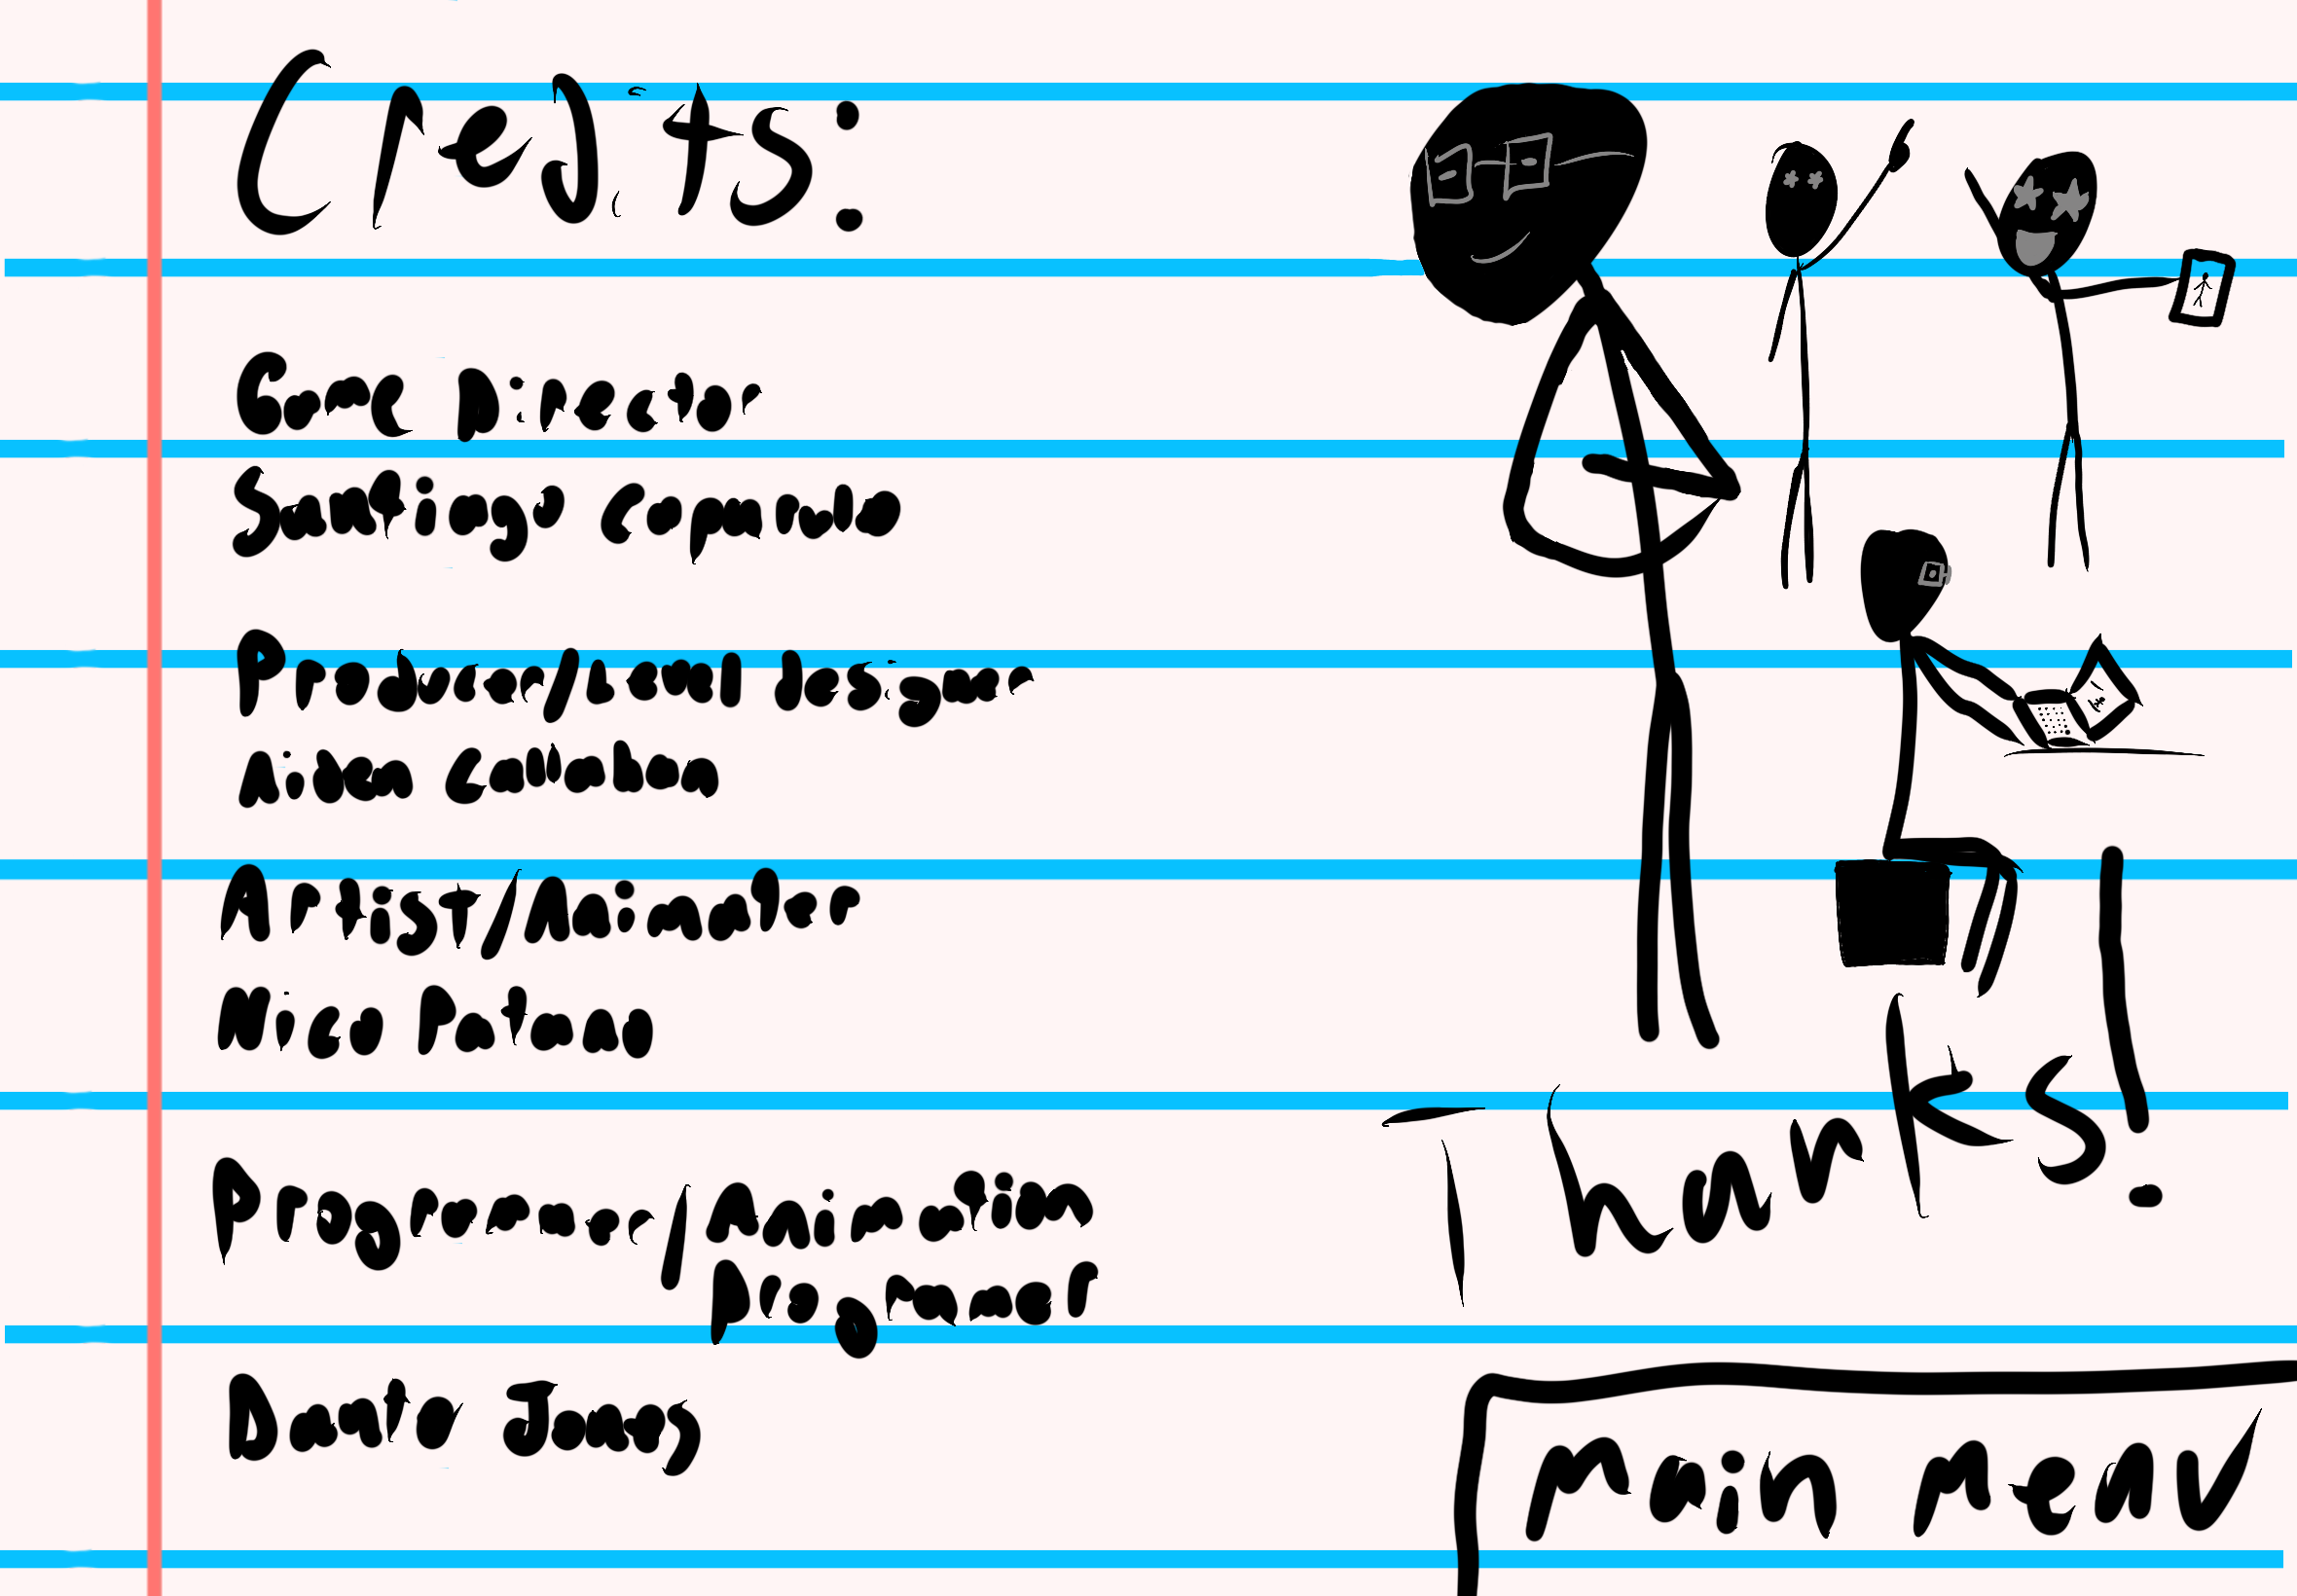 Credits:
Game Director
Santiago
Producer/Level designer
Aiden Callahan
Artist/Animator
Nico Patano
Programmer/Animation
Programmer
Dante Jones
Thanks!
Main Menu